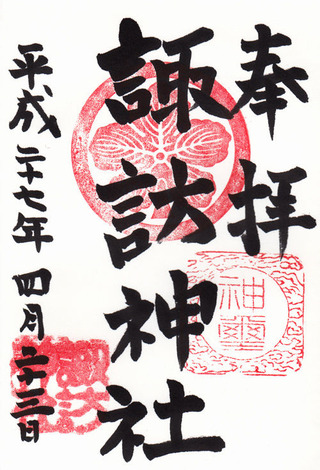 奉拝
諏訪神社
平成二十七年四月二十三日